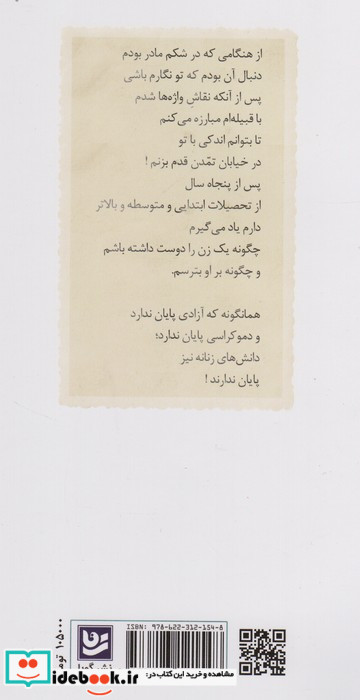 از هنگامی که در شکم مادر بودم
دنبال آن بودم که تو نگارم باشی
پس از آنکه نقاشِ واژه‌ها شدم
با قبیله‌ام مبارزه می‌کنم
تا بتوانم اندکی با تو
در خیابان تمّدن قدم بزنم !
پس از پنجاه سال
از تحصیلات ابتدایی و متوسطه و بالاتر
دارم یاد می‌گیرم
چگونه یک زن را دوست داشته باشم
و چگونه بر او بترسم.
همانگونه که آزادی پایان ندارد
و دموکراسی پایان ندارد؛
دانش‌های زنانه نیز
پایان ندارند !
ISBN: 978-622-312-154-8
۱۰۵۰۰۰
مشاهده و خرید این کتاب در:
idebook.ir